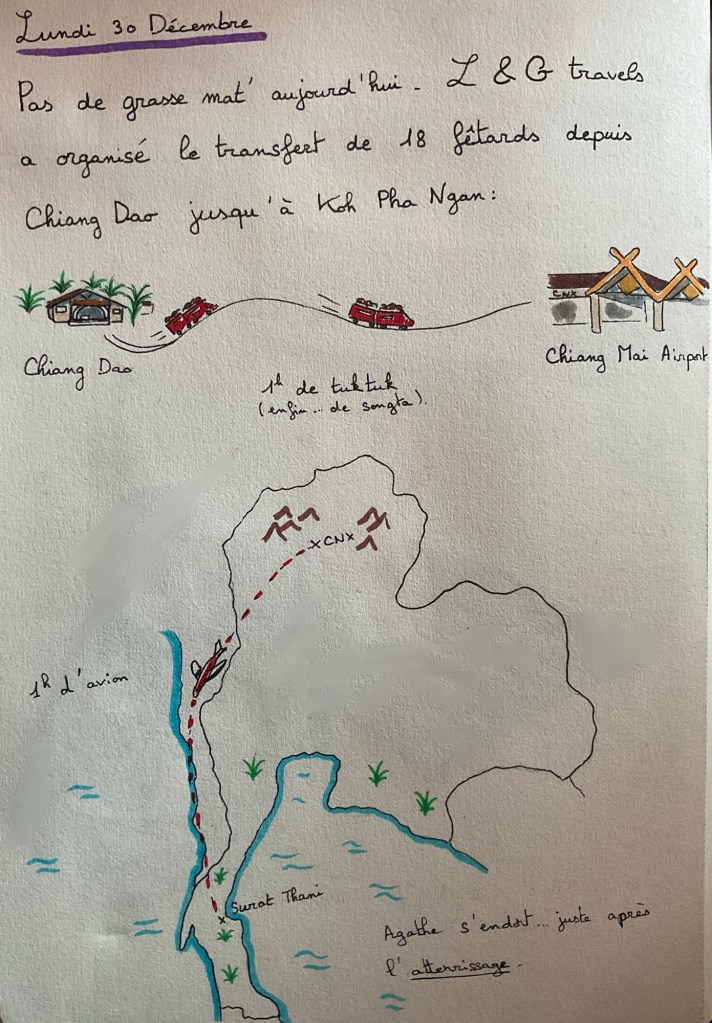 Lundi 30 Décembre
Pas de grasse mat' aujourd'hui. L & G travels
a organisé le transfert de 18 fêtards depuis
Chiang Dao jusqu'à Koh Pha Ngan :
CNX
Chiang Dao
Chiang Mai Airport
1h de tuktuk
(enfin... de songta).
CNX
1h d'avion
Surat Thani
Agathe s'endort... juste après
l'atterrissage.